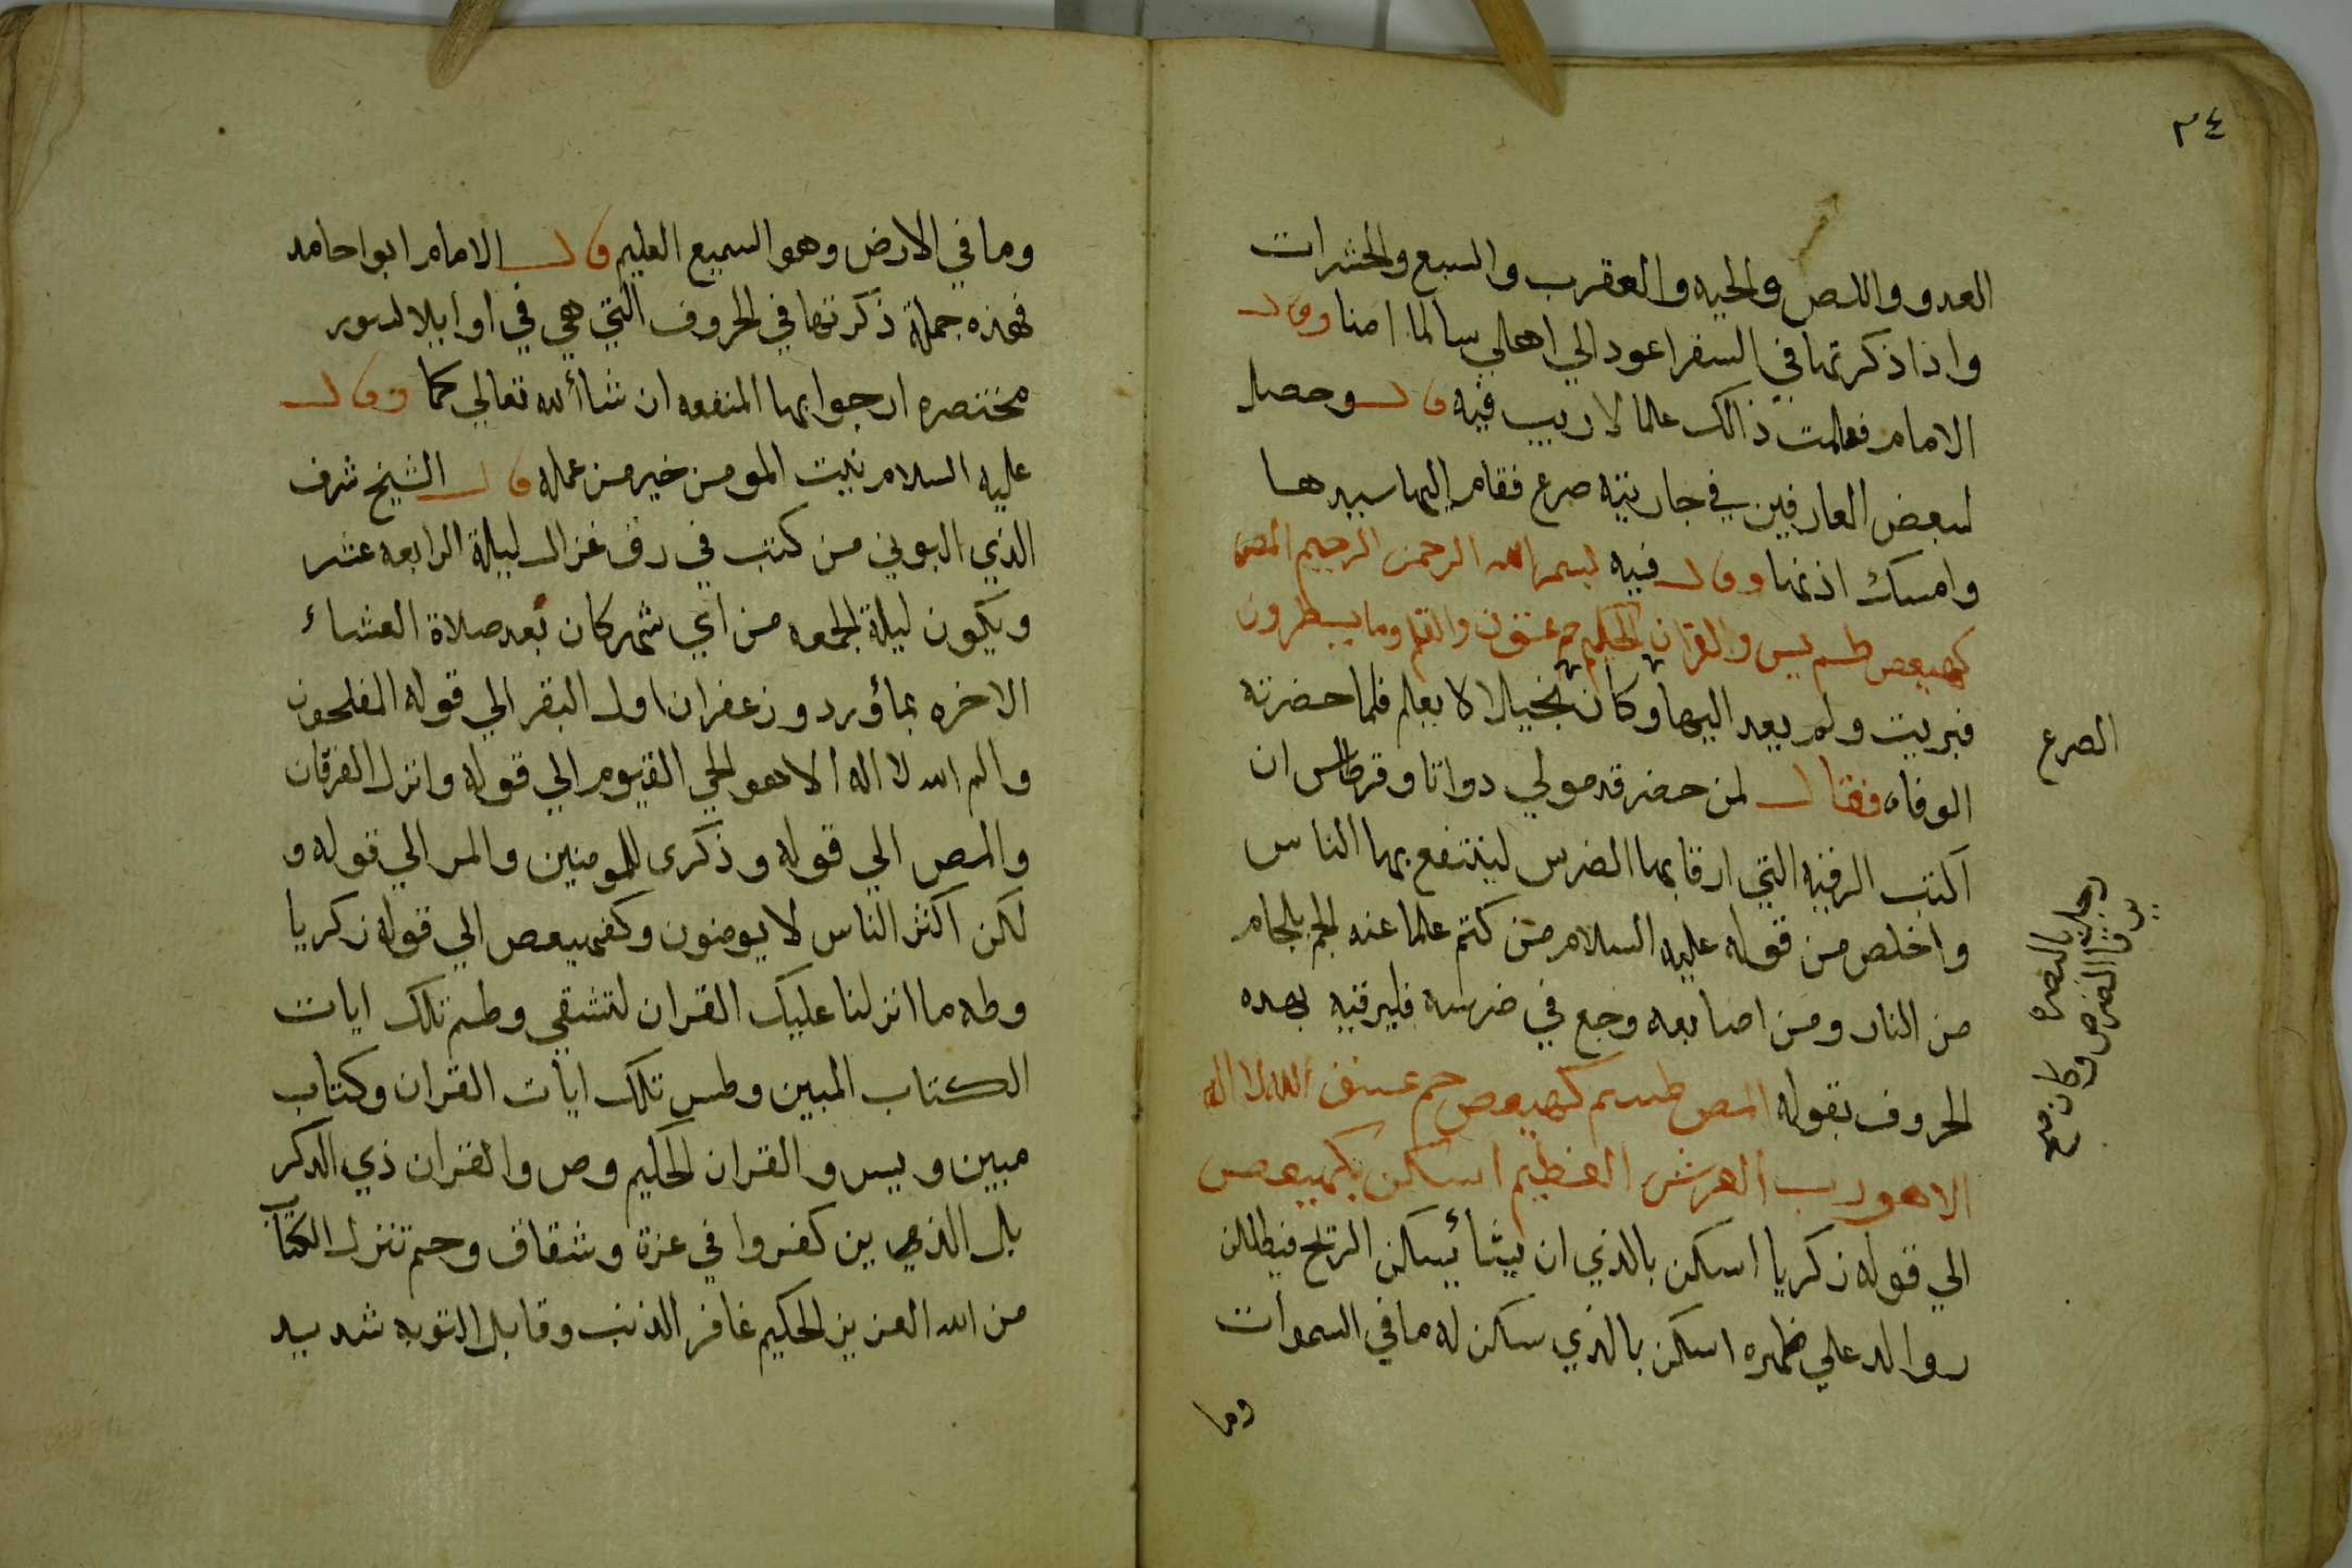 ٣٤
العدو واللص والحيه والعقرب والسبع والحشرات
واذا ذكرتها في السفر اعود الي اهلي سالما امنا وقال
الامام فعلمت ذالك علما لا ريب فيه قال وحصل
لبعض العارفين في جاريته صرع فقام اليها سيدها
وامسك اذنها وقال فيه بسم الله الرحمن الرحيم المص
كهيعص طسم يس والقران الحكيم حم عسق ن والقلم وما يسطرون
فبريت ولم يعد اليها وكان بخيلا لا يعلم فلما حضرته
الوفاه فقال لمن حضر قدمولي دواتا وقرطاس ان
اكتب الرقيه التي ارقا بها الضرس لينتفع بها الناس
واخلص من قوله عليه السلام من كتم علما عنه لجم بلجام
من النار ومن اصابعه وجع في ضرسه فليرقيه بهده
الحروف بقوله المص طسم كهيعص حم عسق الله لا اله
الا هو رب العرش العظيم اسكن بكهيعص
الي قوله زكريا اسكن بالذي ان يشا يسكن الريح فيظللن
رواكد علي ظهره اسكن بالذي سكن له ما في السموات
وما
الصرع
رجل بالبصره كان
يرقا الضرس و
وما في الارض وهو السميع العليم قال الامام ابوا حامد
فهذه جملة ذكرتها في الحروف التي هي في اوايلا لسور
مختصره ارجوا بها المنفعه ان شاألله تعالي كما وقال
عليه السلام نيت المومن خير من عمله قال الشيخ شرف
الذي البوني من كتب في رق غزال ليلة الرابعه عشر
ويكون ليلة الجمعه من اي شهر كان بعد صلاة العشاء
الاخره بماؤرد وزعفران اول البقر الي قوله المفلحون
والم الله لا اله الا هو الحي القيوم الي قوله وانزل الفرقان
والمص الي قوله وذكرى للمومنين والمر الي قوله و
لكن اكثر الناس لا يومنون وكهيعص الي قوله زكريا
وطه ما انزلنا عليك القران لتشقي وطسم تلك ايات
الكتاب المبين وطس تلك ايات القران وكتاب
مبين ويس والقران الحكيم وص والقران ذي الدكر
بل الذي ين كفروا في عزة وشقاق وحم تنزل الكتاب
من الله العزيز الحكيم غافر الذنب وقابل التوبه شديد